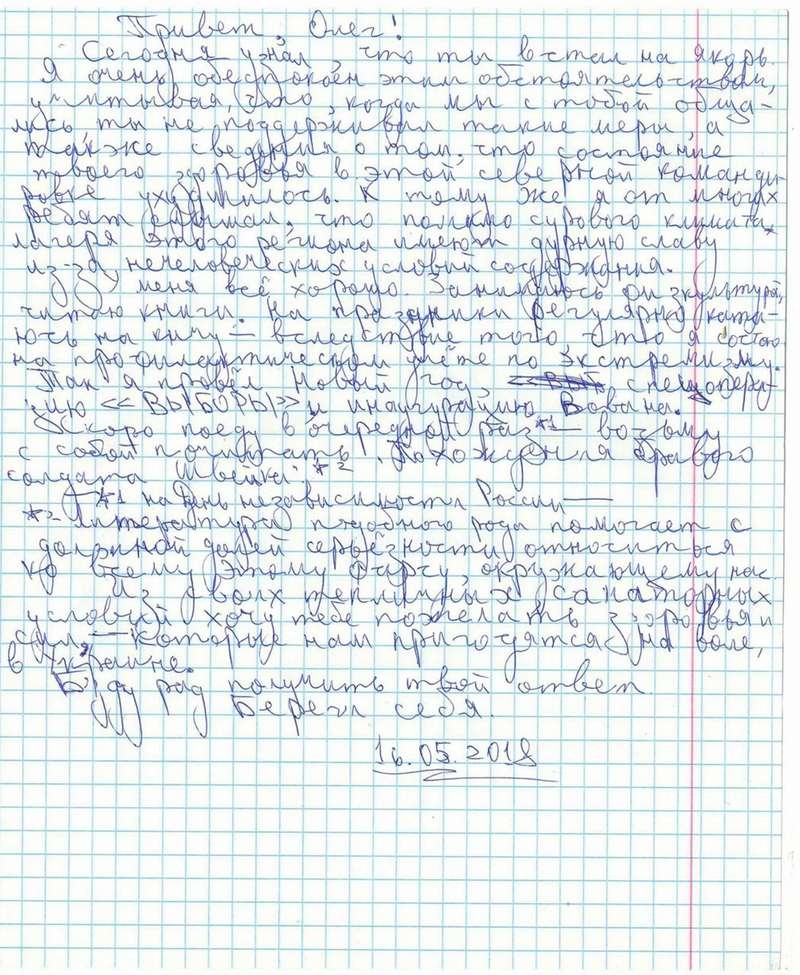 Привет, Олег!
Сегодня узнал, что ты встал на якорь.
Я очень обеспокоен этим обстоятельством,
учитывая, что, когда мы с тобой обща-
лись, ты не поддерживал такие меры, а
также сведения о том, что состояние
твоего здоровья в этой северной команди-
ровке ухудшилось. К тому же я от многих
ребят слышал, что помимо сурового климата,
лагеря этого региона имеют дурную славу
из-за нечеловеческих условий содержания.
У меня всё хорошо. Занимаюсь физкультурой,
читаю книги. На праздники регулярно ката-
юсь на кичу – вследствие того, что я состою
на профилактическом учёте по экстремизму.
Так я провёл Новый год, спецопера-
цию «ВЫБОРЫ» и инаугурацию Вована.
Скоро поеду в очередной раз*1 – возьму
с собой почитать "Похождения бравого
солдата Швейка".*2
*1 на День независимости России —
*2 Литература подобного рода помогает с
должной долей серьёзности относиться
ко всему этому фарсу, окружающему нас.
Из своих тепличных санаторных
условий хочу тебе пожелать здоровья и
сил – которые нам пригодятся на воле,
в Украине.
Буду рад получить твой ответ.
Береги себя.
16.05.2018